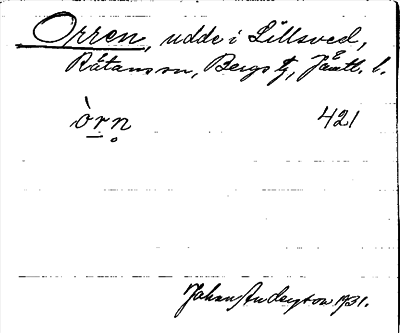 Orren, udde i Lillsved,
Rätans sn, Bergs tg, Jämtl. l.
òrn 421
Johan Anderson 1931.